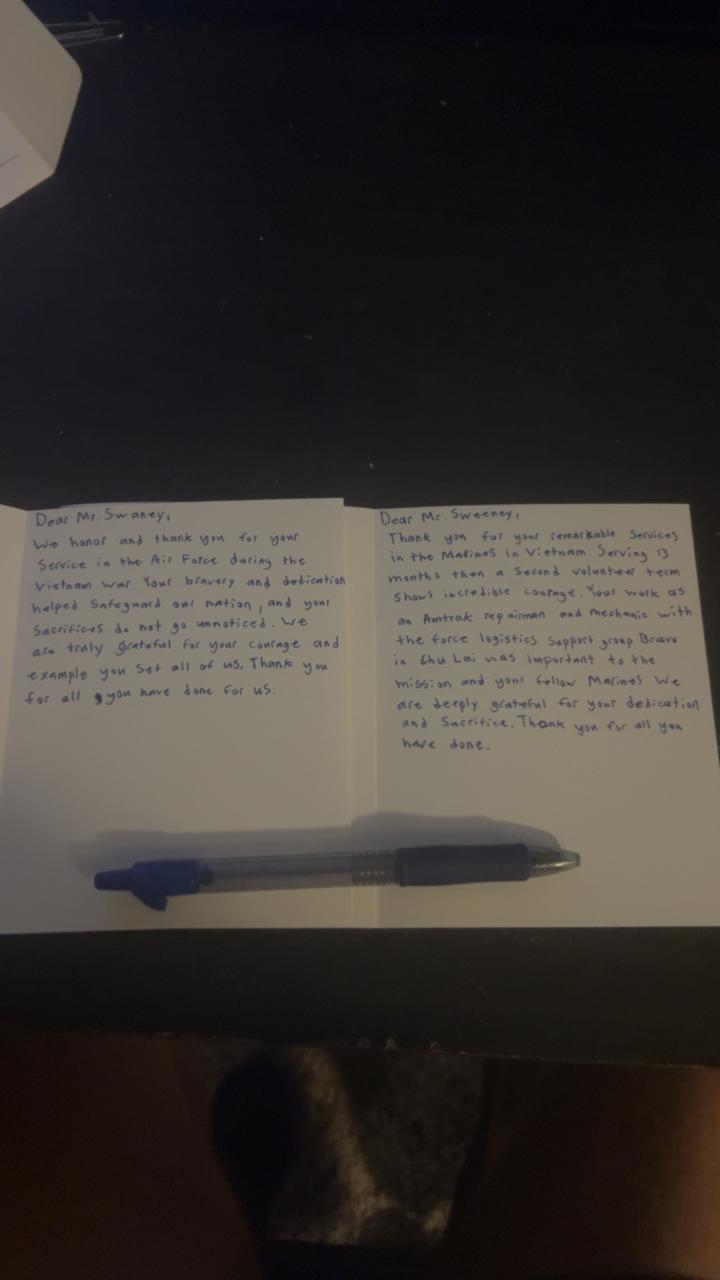 Dear Mr. Swaney,
We honor and thank you for your
Service in the Air Force during the
Vietnam war. Your bravery and dedication
helped Safeguard our nation, and your
Sacrifices do not go unnoticed. We
are truly grateful for your courage and
example you set all of us. Thank you
for all you have done for us.
Dear Mr. Sweeney,
Thank you for your remarkable Services
in the Marines in Vietnam. Serving 13
months then a Second volunteer term
shows incredible courage. Your work as
an Amtrak repairman and mechanic with
the force logistics Support group Bravo
in Chu Lai was important to the
mission and your fellow Marines. We
are deeply grateful for your dedication
and Sacrifice. Thank you for all you
have done.